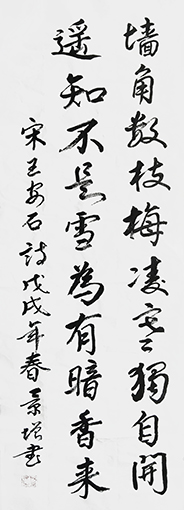 墙角数枝梅凌寒獨自開
遥知不是雪為有暗香来
宋王安石詩戊戌年春景增書